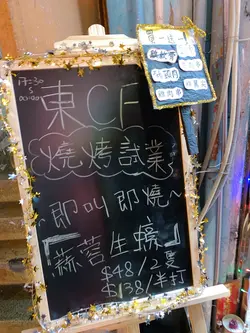 17:30
5
00:00
東 CF
燒烤試業
即叫即燒~
『蒜蓉生蠔』
$48/2隻
$138/半打
買一送一